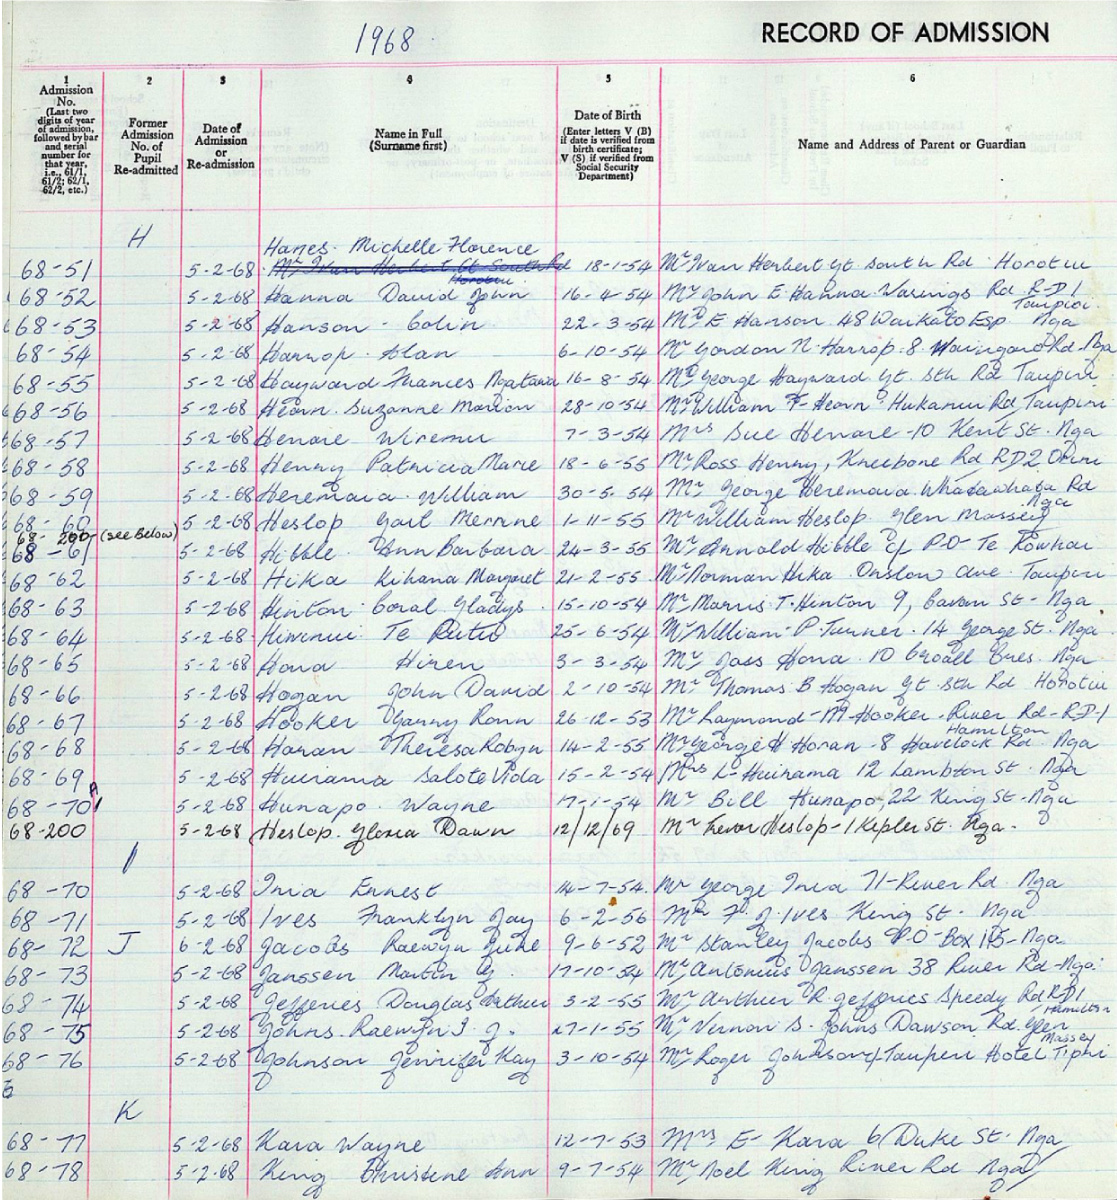 1968
RECORD OF ADMISSION
1 2 3 4 5 6
Admission No. (Last two digits of year of admission, followed by bar and serial number for that year, i.e., 61/1, 61/2; 62/1, 62/2, etc.)
Former Admission No. of Pupil Re-admitted
Date of Admission or Re-admission
Name in Full (Surname first)
Date of Birth (Enter letters V (B) if date is verified from birth certificate; V (S) if verified from Social Security Department)
Name and Address of Parent or Guardian
H
Hanes. Michelle Florence
68-51 5-2-68 Mr Ivan Herbert Gt South Rd Horotiu 18-1-54 Mr Ivan Herbert Gt South Rd Horotiu
68-52 5-2-68 Hanna David John 16-4-54 Mr John E Hanna Warings Rd RD1 Taupiri
68-53 5-2-68 Hanson - Colin 22-3-54 Mr E Hanson 48 Waikato Esp. Nga
68-54 5-2-68 Harrop. Alan 6-10-54 Mr Gordon N. Harrop. 8 Rd. Nga
68-55 5-2-68 Hayward Frances 16-8-54 Mr George Hayward Gt. Sth Rd Taupiri
68-56 5-2-68 Hearn. Suzanne Marion 28-10-54 Mr William F. Hearn Hukanui Rd Taupiri
68-57 5-2-68 Henare Wiremu 7-3-54 Mrs Sue Henare - 10 Kent St. Nga
68-58 5-2-68 Henry Patricia Marie 18-6-55 Mr Ross Henry, Kneebone Rd RD2 Orini
68-59 5-2-68 Heremaia. William 30-5-54 Mr George Heremaia. Whatawhata Rd Nga
68-60 5-2-68 Heslop Gail 1-11-55 Mr William Heslop. Glen Massey
68-200 (see Below)
68-61 5-2-68 Hibble Ann Barbara 24-3-55 Mr Arnold Hibble c/ P.O Te Kowhai
68-62 5-2-68 Hika Kihana Margaret 21-2-55 Mr Norman Hika Onslow Ave. Taupiri
68-63 5-2-68 Hinton Coral Gladys. 15-10-54 Mr Morris T. Hinton 9, Cavan St - Nga
68-64 5-2-68 Te 25-6-54 Mr William P. Turner. 14 George St. Nga
68-65 5-2-68 Hona Hiren 3-3-54 Mr Joss Hona. 10 Croall Cres. Nga
68-66 5-2-68 Hogan John David 2-10-54 Mr Thomas B Hogan Gt Sth Rd Horotiu
68-67 5-2-68 Hooker Garry Ronn 26-12-53 Mr Raymond M Hooker. River Rd - RD1 Hamilton
68-68 5-2-68 Horan Theresa Robyn 14-2-55 Mr George H Horan - 8 Havelock Rd Nga
68-69 5-2-68 Huirama Salote Vida 15-2-54 Mrs L Huirama 12 Lambton St - Nga
68-70A 5-2-68 Hunapo. Wayne 17-1-54 Mr Bill Hunapo, 22 King St - Nga
68-200 5-2-68 Heslop. Gloria Dawn 12/12/69 Mr Trevor Heslop - 1 Kepler St. Nga.
I
68-70 5-2-68 Inia Ernest 14-7-54. Mr George Inia 71-River Rd. Nga
68-71 5-2-68 Ives Franklyn Jay 6-2-56 Mr F. J. Ives King St - Nga
68-72 J 6-2-68 Jacobs Raewyn June 9-6-52 Mr Stanley Jacobs P.O Box 115-Nga
68-73 5-2-68 Janssen Martin G. 17-10-54 Mr Antonius Janssen 38 River Rd - Nga.
68-74 5-2-68 Jefferies Douglas Arthur 3-2-55 Mr Arthur R. Jefferies Speedy Rd RD1 Hamilton
68-75 5-2-68 Johns. Raewyn J. J. 27-1-55 Mr Vernon S. Johns Dawson Rd. Glen Massey
68-76 5-2-68 Johnson Jennifer Kay 3-10-54 Mr Roger Johnson c/ Taupiri Hotel
K
68-77 5-2-68 Kara Wayne 12-7-53 Mrs E - Kara 6 Duke St. Nga
68-78 5-2-68 King Christene Ann 9-7-54 Mr Noel King River Rd Nga